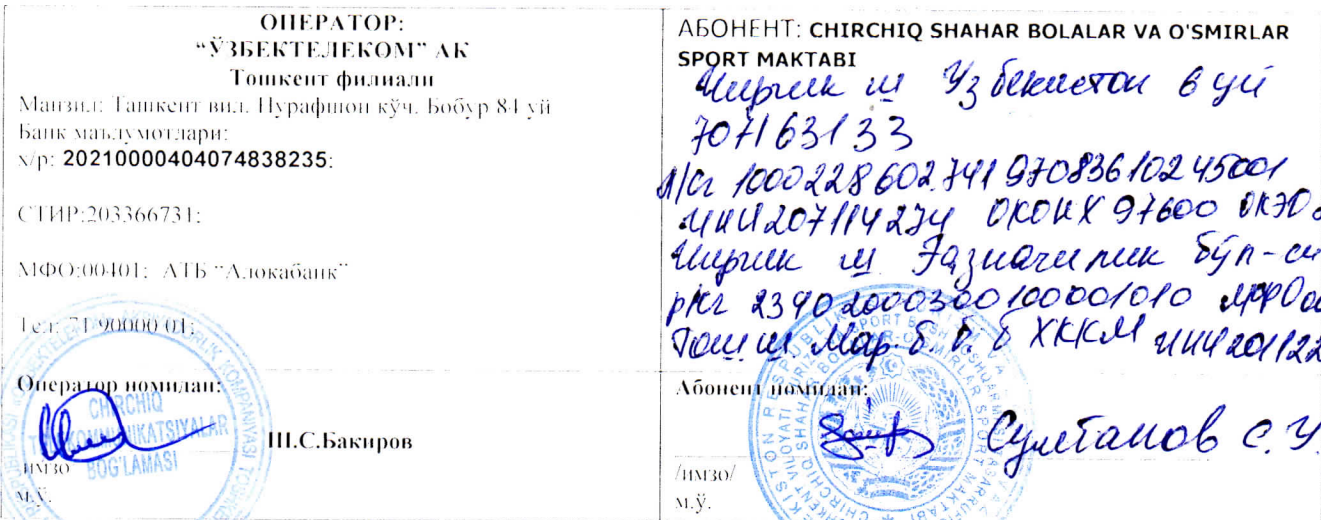 ОПЕРАТОР:
“ЎЗБЕКТЕЛЕКОМ” АК
Тошкент филиали
Манзил: Ташкент вил. Нурафшон кўч. Бобур 84 уй
Банк маълумотлари:
х/р: 20210000404074838235;
СТИР:203366731;
МФО:00401; АТБ “Алокабанк”
Тел: 71 90000 01;
Оператор номидан:
CHIRCHIQ
BOG'LAMASI
Ш.С.Бакиров
имзо
М.Ў.
АБОНЕНТ: CHIRCHIQ SHAHAR BOLALAR VA O'SMIRLAR
SPORT MAKTABI
Чирчик ш Узбекистон 6 уй
707163133
л/сг 100022860274197083610245001
ИНН 207114274 ОКОНХ 97600
Чирчик ш Ғазначилик бўл-си
р/сг 23402000300100001010 МФО
Тош ш Мар. Б. ХККМ ИНН 201122
Абонент номидан:
Султанов С.У.
/имзо/
М.Ў.